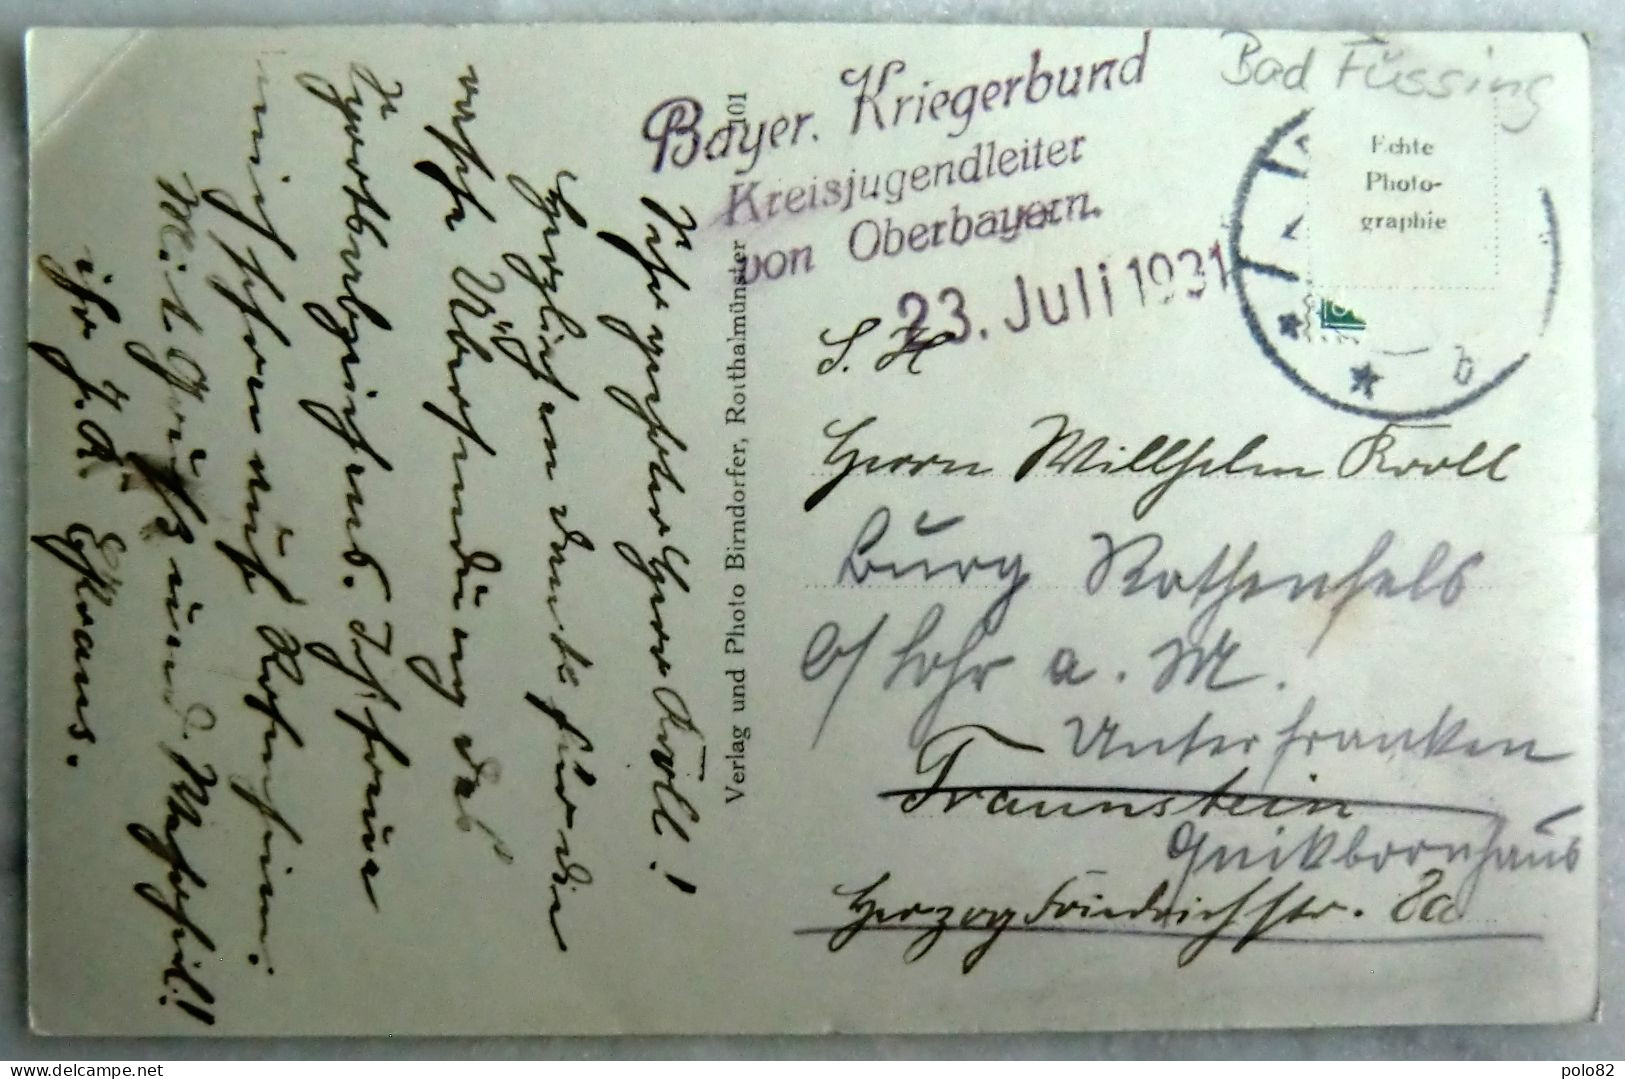 Bad Füssing
Bayer. Kriegerbund
Kreisjugendleiter
von Oberbayern.
23. Juli 1931
Echte
Photo-
graphie
b
S. H
Herrn Willhelm Kroll
Burg Rothenfels
b/ Lohr a. M.
Unterfranken
Traunstein
Quikbornhaus
Herzog Friedrichstr. 8a
Verlag und Photo Birndorfer, Rotthalmünster 101
Sehr geehrter Herr Kroll!
Herzlichen Dank für die
rasche Übersendung des
Sportabzeichens. Ich freue
mich schon auf
Mit Gruß und Waidheil!
Ihr